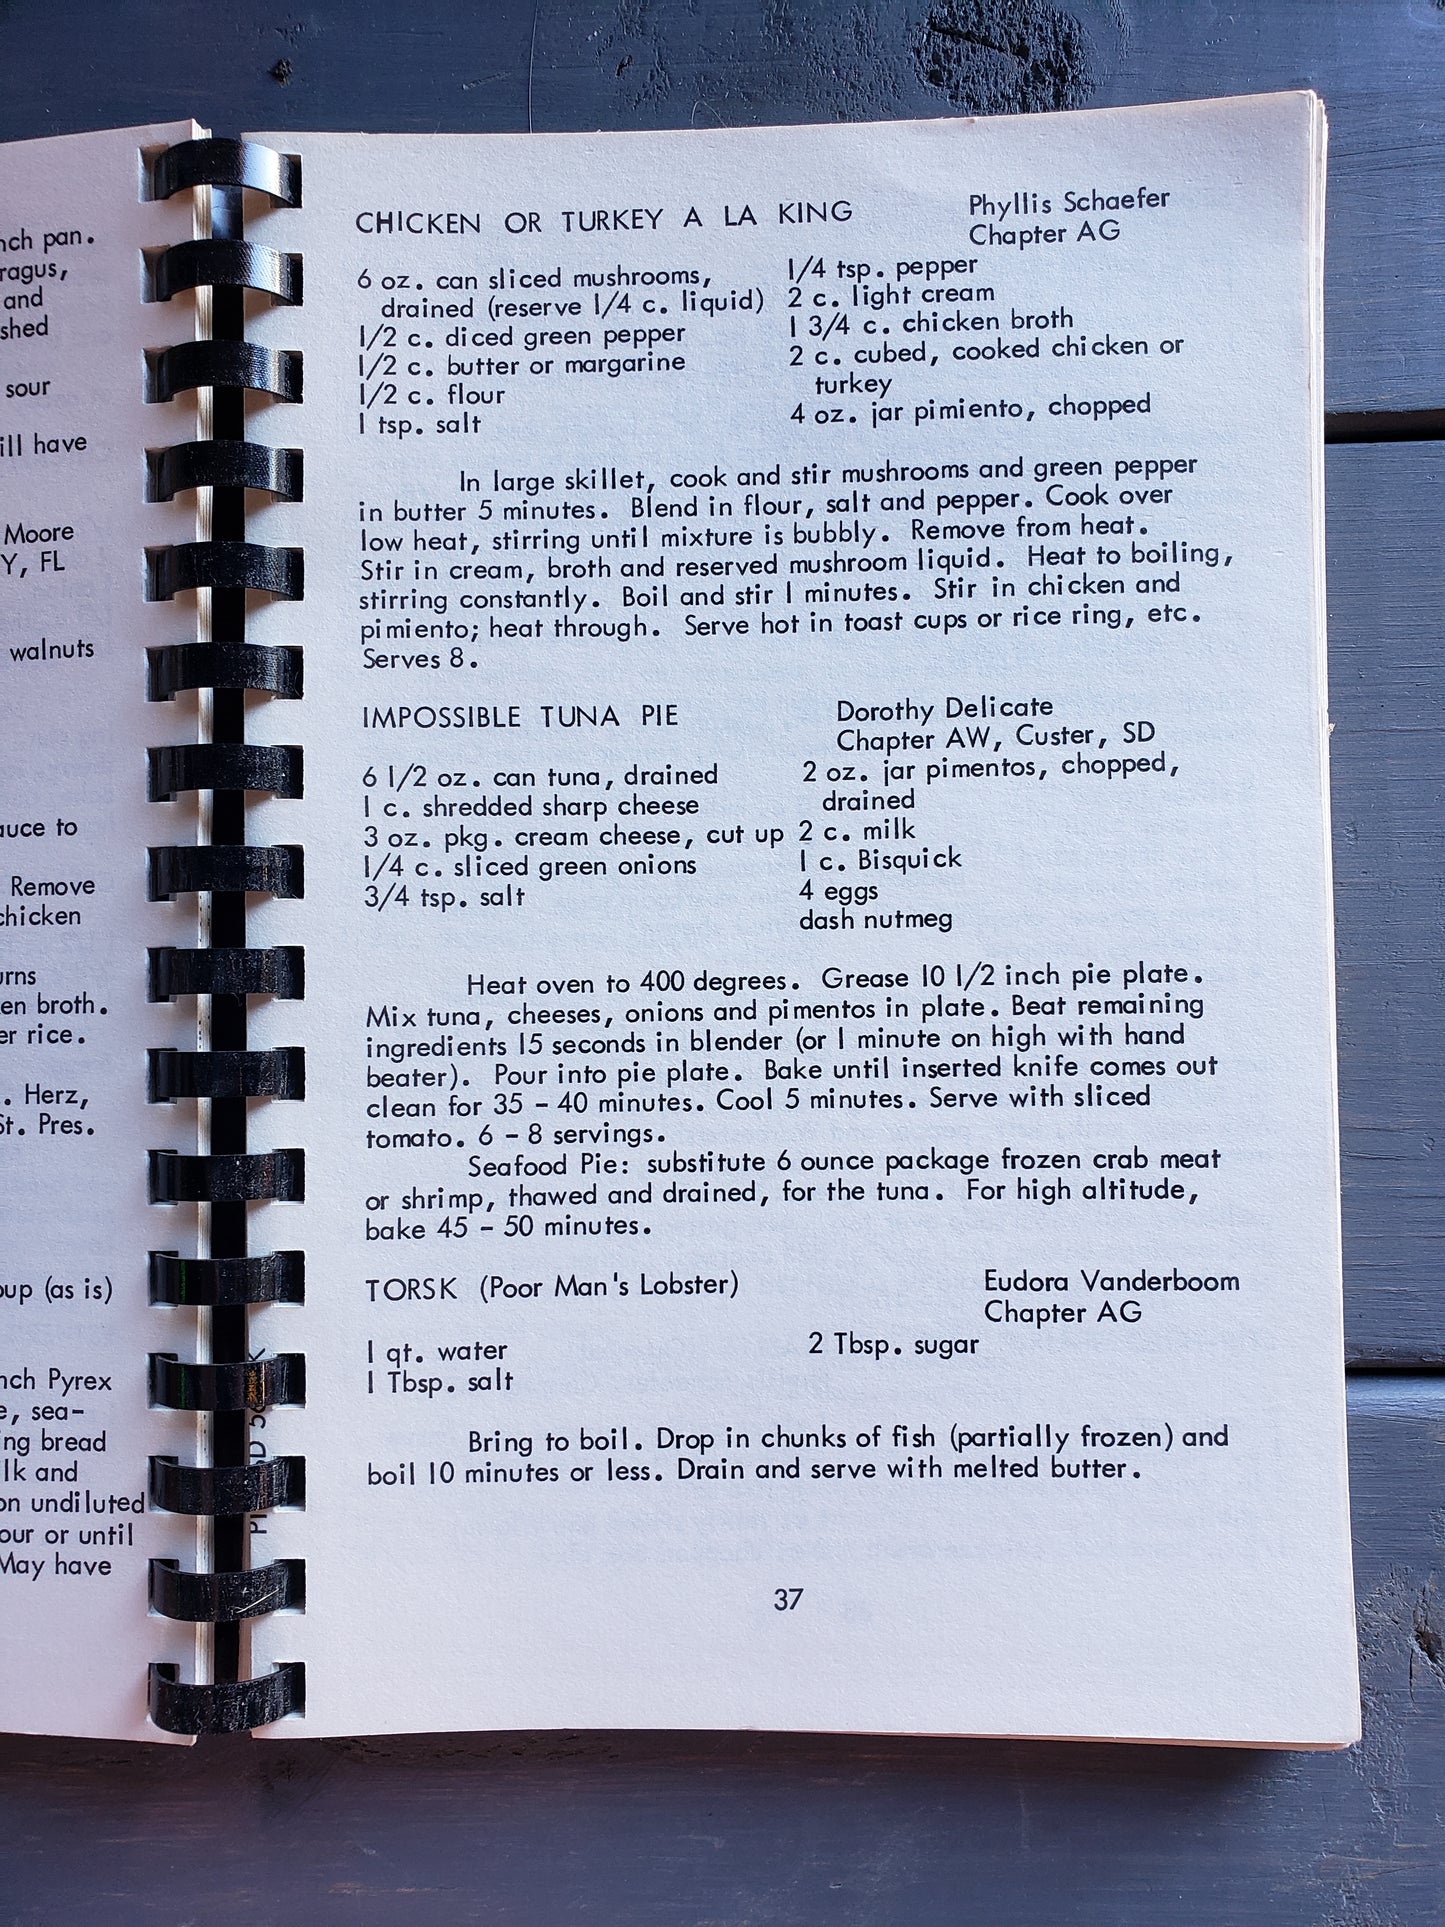 nch pan.
ragus,
and
shed
sour
ill have
Moore
Y, FL
walnuts
auce to
Remove
chicken
urns
en broth.
er rice.
. Herz,
St. Pres.
oup (as is)
nch Pyrex
e, sea-
ing bread
lk and
on undiluted
our or until
May have
CHICKEN OR TURKEY A LA KING
Phyllis Schaefer
Chapter AG
6 oz. can sliced mushrooms,
drained (reserve 1/4 c. liquid)
1/2 c. diced green pepper
1/2 c. butter or margarine
1/2 c. flour
1 tsp. salt
1/4 tsp. pepper
2 c. light cream
1 3/4 c. chicken broth
2 c. cubed, cooked chicken or
turkey
4 oz. jar pimiento, chopped
In large skillet, cook and stir mushrooms and green pepper
in butter 5 minutes. Blend in flour, salt and pepper. Cook over
low heat, stirring until mixture is bubbly. Remove from heat.
Stir in cream, broth and reserved mushroom liquid. Heat to boiling,
stirring constantly. Boil and stir 1 minutes. Stir in chicken and
pimiento; heat through. Serve hot in toast cups or rice ring, etc.
Serves 8.
IMPOSSIBLE TUNA PIE
Dorothy Delicate
Chapter AW, Custer, SD
6 1/2 oz. can tuna, drained
1 c. shredded sharp cheese
3 oz. pkg. cream cheese, cut up
1/4 c. sliced green onions
3/4 tsp. salt
2 oz. jar pimentos, chopped,
drained
2 c. milk
1 c. Bisquick
4 eggs
dash nutmeg
Heat oven to 400 degrees. Grease 10 1/2 inch pie plate.
Mix tuna, cheeses, onions and pimentos in plate. Beat remaining
ingredients 15 seconds in blender (or 1 minute on high with hand
beater). Pour into pie plate. Bake until inserted knife comes out
clean for 35 - 40 minutes. Cool 5 minutes. Serve with sliced
tomato. 6 - 8 servings.
Seafood Pie: substitute 6 ounce package frozen crab meat
or shrimp, thawed and drained, for the tuna. For high altitude,
bake 45 - 50 minutes.
TORSK (Poor Man's Lobster)
Eudora Vanderboom
Chapter AG
1 qt. water
1 Tbsp. salt
2 Tbsp. sugar
Bring to boil. Drop in chunks of fish (partially frozen) and
boil 10 minutes or less. Drain and serve with melted butter.
37